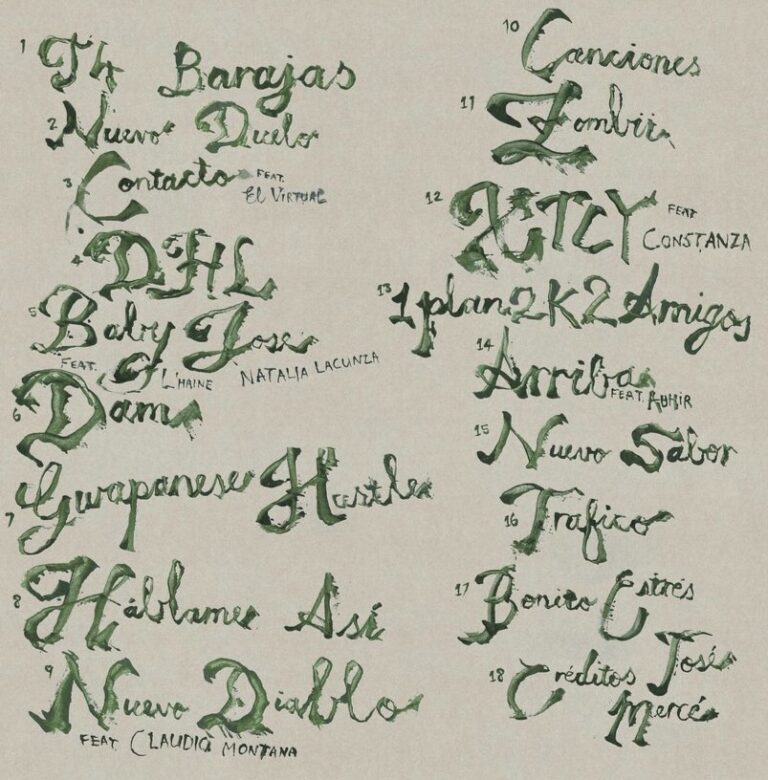 1 T4 Barajas
2 Nuevo Duelo
3 Contacto FEAT. EL VIRTUAL
4 DHL
5 Baby Jose
FEAT. L'HAINE NATALIA LACUNZA
6 Dam
7 Gwapanese Hustle
8 Háblame Así
9 Nuevo Diablo
FEAT. CLAUDIO MONTANA
10 Canciones
11 Zombii
12 XTCY FEAT CONSTANZA
13 1plan2K2Amigos
14 Arriba FEAT. ABHIR
15 Nuevo Sabor
16 Trafico
17 Bonito Estrés
18 Créditos José
Mercé